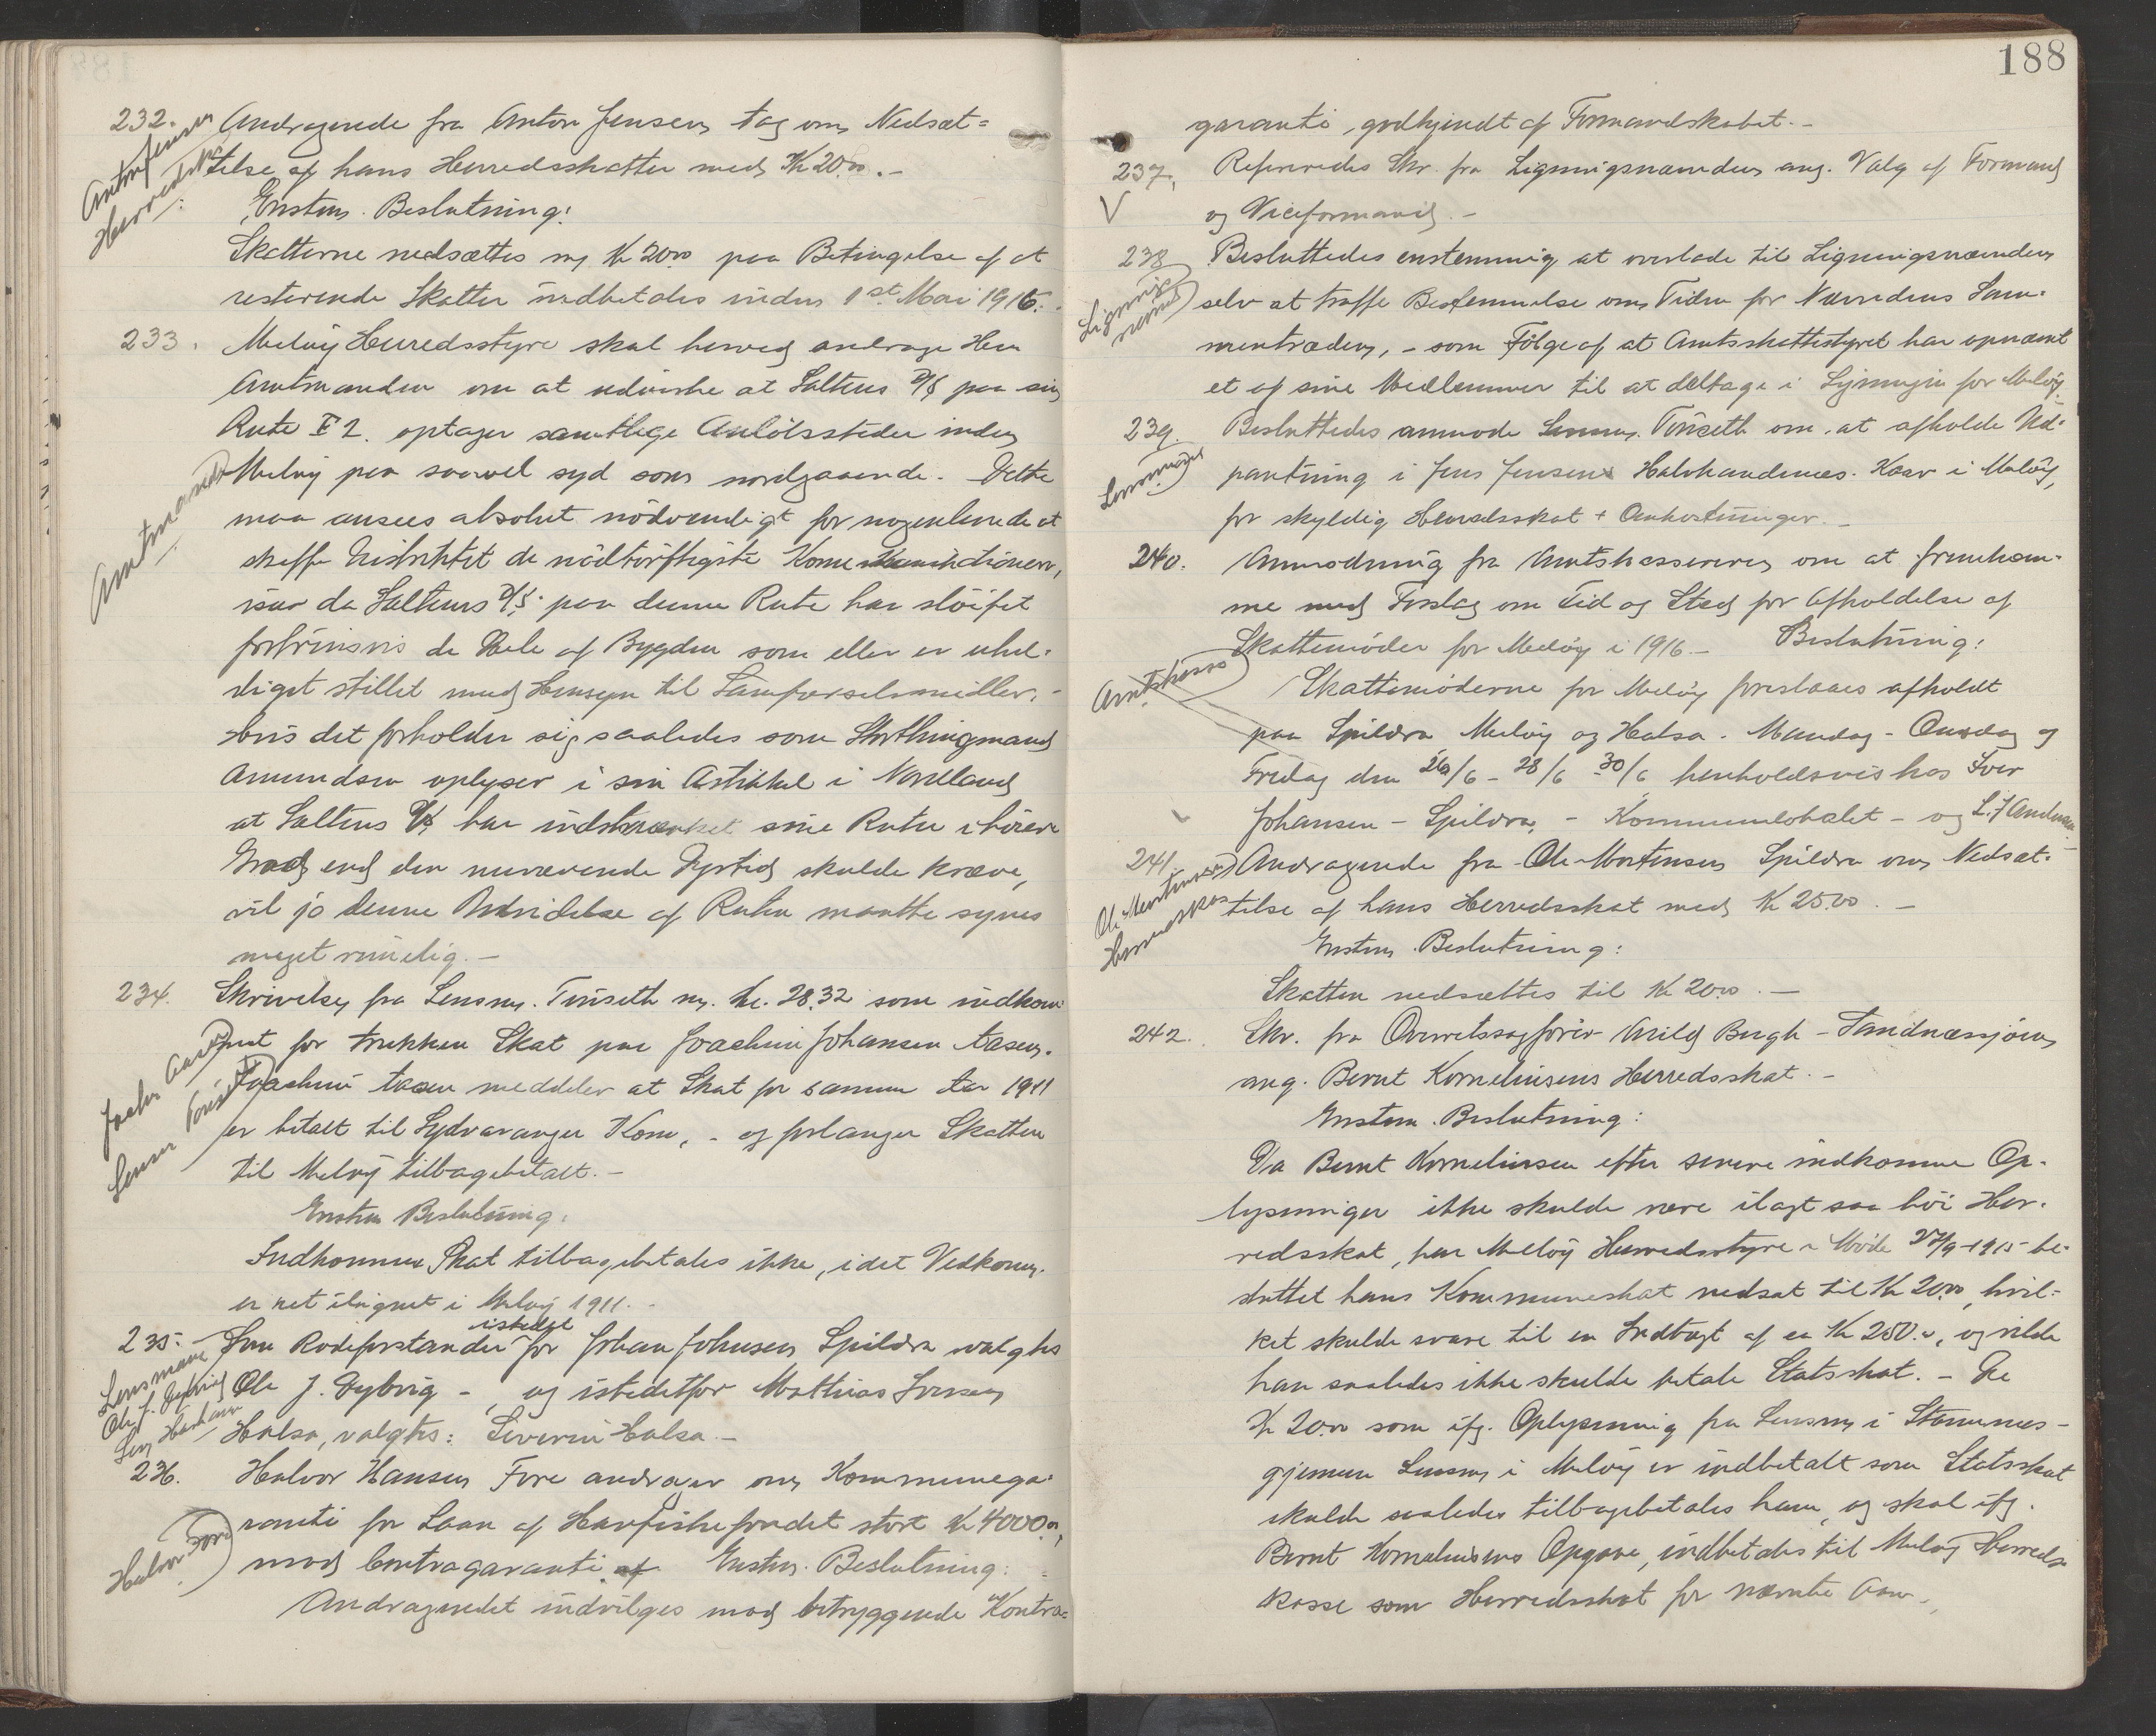 232. Andragende fra Anton Jensen Aag om Nedsæt=
Anton Jensen
Herredsska
telse af hans Herredsskatter med Kr 20.00.-
Enstem. Beslutning:
Skatterne nedsættes m/ Kr 20.00 paa Betingelse af at
resterende Skatter indbetales inden 1st Mai 1916.
233. Meløy Herredsstyre skal herved andrage Herr
Amtmanden om at udvirke at Saltens D/S paa sin
Rute 2. optager samtlige Anløbssteder inden
Amtmand
Meløy paa saavel syd som nordgaaende. Dette
maa ansees absolut nødvendigt for nogenlunde at
skaffe Distriktet de nødtørftigste Kommunikationer,
især da Saltens D/S. paa denne Rute har sløifet
fortrinsvis de Dele af Bygden som eller er uhel-
digst stillet med Hensyn til Samfærselsmidler. -
Hvis det forholder sig saaledes som Storthingmand
Amundsen oplyser i sin Artikkel i Nordland
at Saltens D/S har indskrænket sine Ruter i høiere
Grad end den nuværende Dyrtid skulde kræve,
vil jo denne Udvidelse af Ruten maatte synes
meget rimelig. -
234. Skrivelse fra Lensm. Tønseth m/. kr. 28.32 som indkom-
met for trukken Skat paa Joachim Johansen Aasen.
Joachim Aasen meddeler at Skat for samme Aar 1911
Lensm Tønseth
er betalt til Sydvaranger Kom, - og forlanger Skatten
til Meløy tilbagebetalt. -
Enstem Beslutning:
Indkommen Skat tilbagebetales ikke, idet Vedkom.
er ret ilignet i Meløy 1911. -
235. Som Rodeforstander istedet for Johan Johnsen Spildra valgtes
Lensmann
Ole J. Dybvig
Ole J. Dybvig -, og istedetfor Mathias Iversen
Halsa, valgtes: Severin Halsa. -
236. Halvor Hansen Fore andrager om Kommunega-
ranti for Laan af Havfiskefondet stort Kr 4000.00,
Halvor Fore
mod Contragaranti. af Enstem. Beslutning:
Andragendet indvilges mod betryggende Kontra=
188
garanti, godkjendt af Formandskabet. -
237, Refereredes Skr. fra Ligningsnævnden ang. Valg af Formand
V
og Viceformand. -
238 Besluttedes enstemmig at overlade til Ligningsnævnden
Lignings
nævnd
selv at træffe Bestemmelse om Tiden for Nævndens Sam-
mentræden, - som Følge af at Amtsskattestyret har opnævnt
et af sine Medlemmer til at deltage i Ligningen for Meløy.
239. Besluttedes anmode Lensm. Tönseth om at afholde Ud-
pantning i Jens Jensens Halvhandenæs. Kaar i Meløy,
for skyldig Herredsskat + Omkostninger. -
240. Anmodning fra Amtskassereren om at fremkom-
me med Forslag om Tid og Sted for Afholdelse af
Skattemøder for Meløy i 1916. - Beslutning:
Amtskass
Skattemøderne for Meløy foreslaaes afholdt
paa Spildra Meløy og Halsa. Mandag - Onsdag og
Fredag den 26/6 - 28/6 30/6 henholdsvis hos Iver
Johansen - Spildra, - Kommunelokalet - og L. J Andersen
241. Andragende fra Ole Mortensen Spildra om Nedsæt-
Ole Mortensen
Herredsskat
telse af hans Herredsskat med Kr 25.00. -
Enstem. Beslutning:
Skatten nedsættes til Kr 20.00. -
242. Skr. fra Overretssagfører Arild Bugh - Sandnæssjøen
ang. Bernt Korneliusens Herredsskat. -
Enstem. Beslutning:
Da Bernt Korneliussen efter senere indkomne Op-
lysninger ikke skulde være ilagt saa høi Her-
redsskat, har Meløy Herredsstyre i Møde 27/9-1915 be-
sluttet hans Kommuneskat nedsat til Kr 20.00, hvil-
ket skulde svare til en Indtægt af ca Kr 250.00, og vilde
han saaledes ikke skulde betale Statsskat. - De
Kr 20.00 som ifg. Oplysning fra Lensm i Stamnes-
gjennem Lensm i Meløy er indbetalt som Statsskat
skulde saaledes tilbagebetales ham, og skal ifg.
Bernt Korneliusens Opgave, indbetales til Meløy Herreds
kasse som Herredsskat for nævnte Aar. -